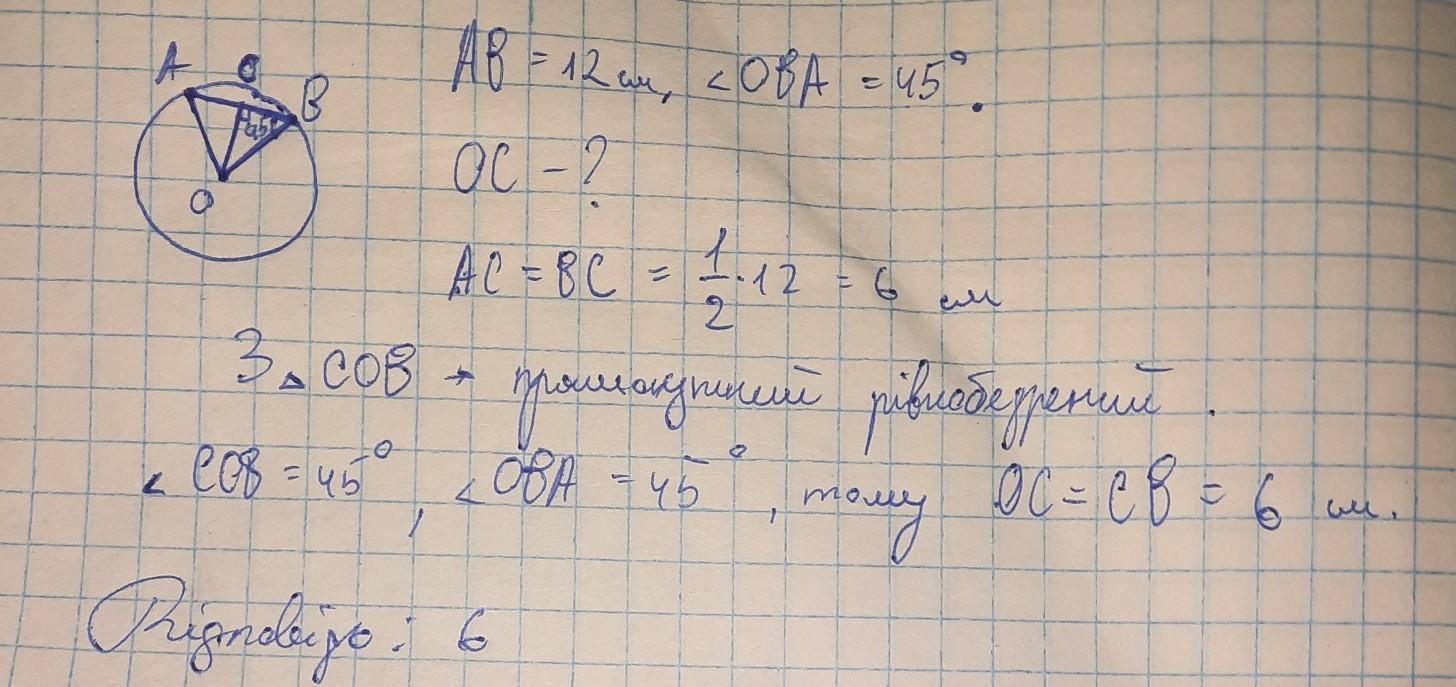 A C B
45°
O
AB = 12 см, ∠OBA = 45°.
OC - ?
AC = BC = 1/2 · 12 = 6 см
З △ COB → прямокутний рівнобедрений.
∠ COB = 45°, ∠OBA = 45°, тому OC = CB = 6 см.
Відповідь: 6